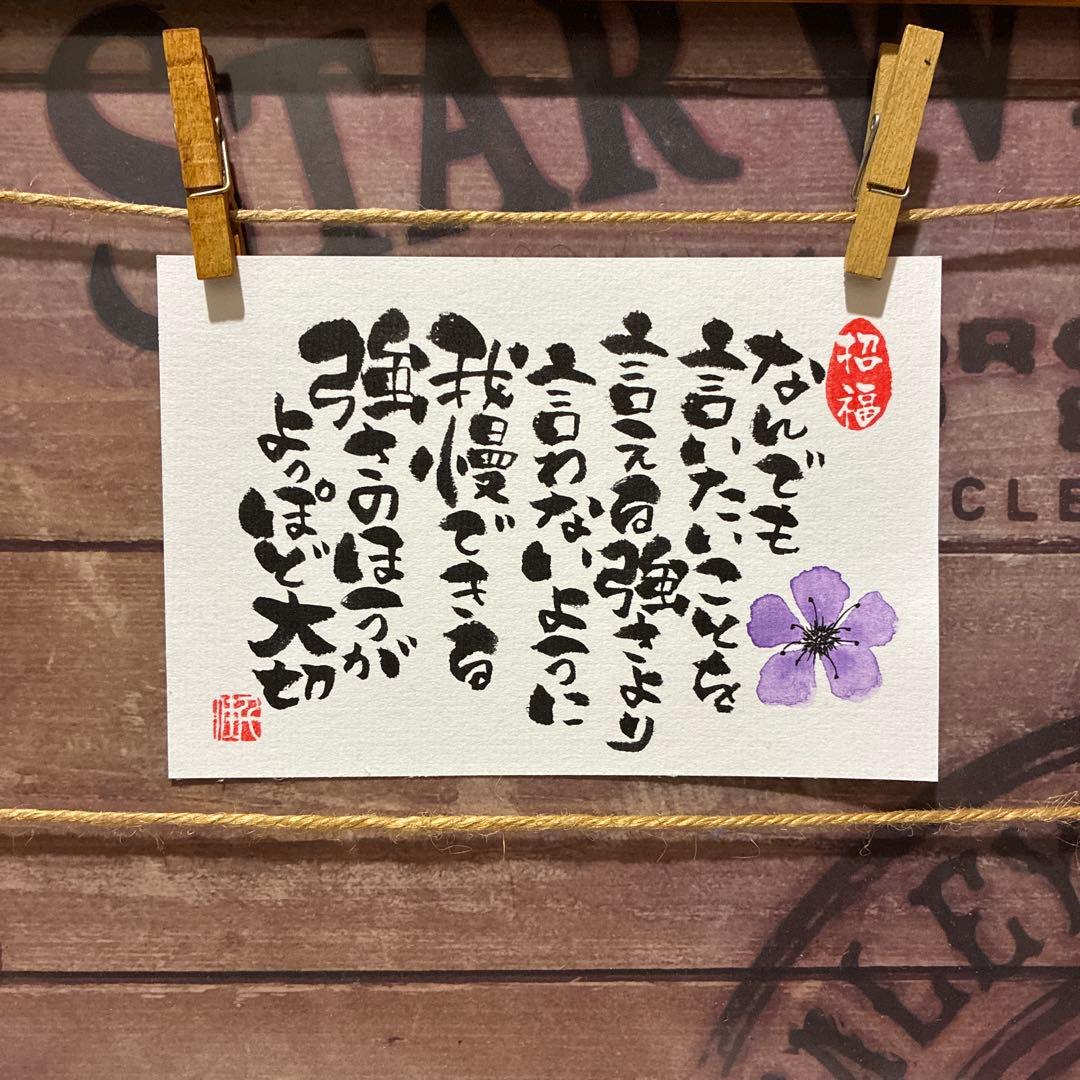 招福
なんでも
言いたいことを
言える強さより
言わないように
我慢できる
強さのほうが
よっぽど大切
STAR W
CLE